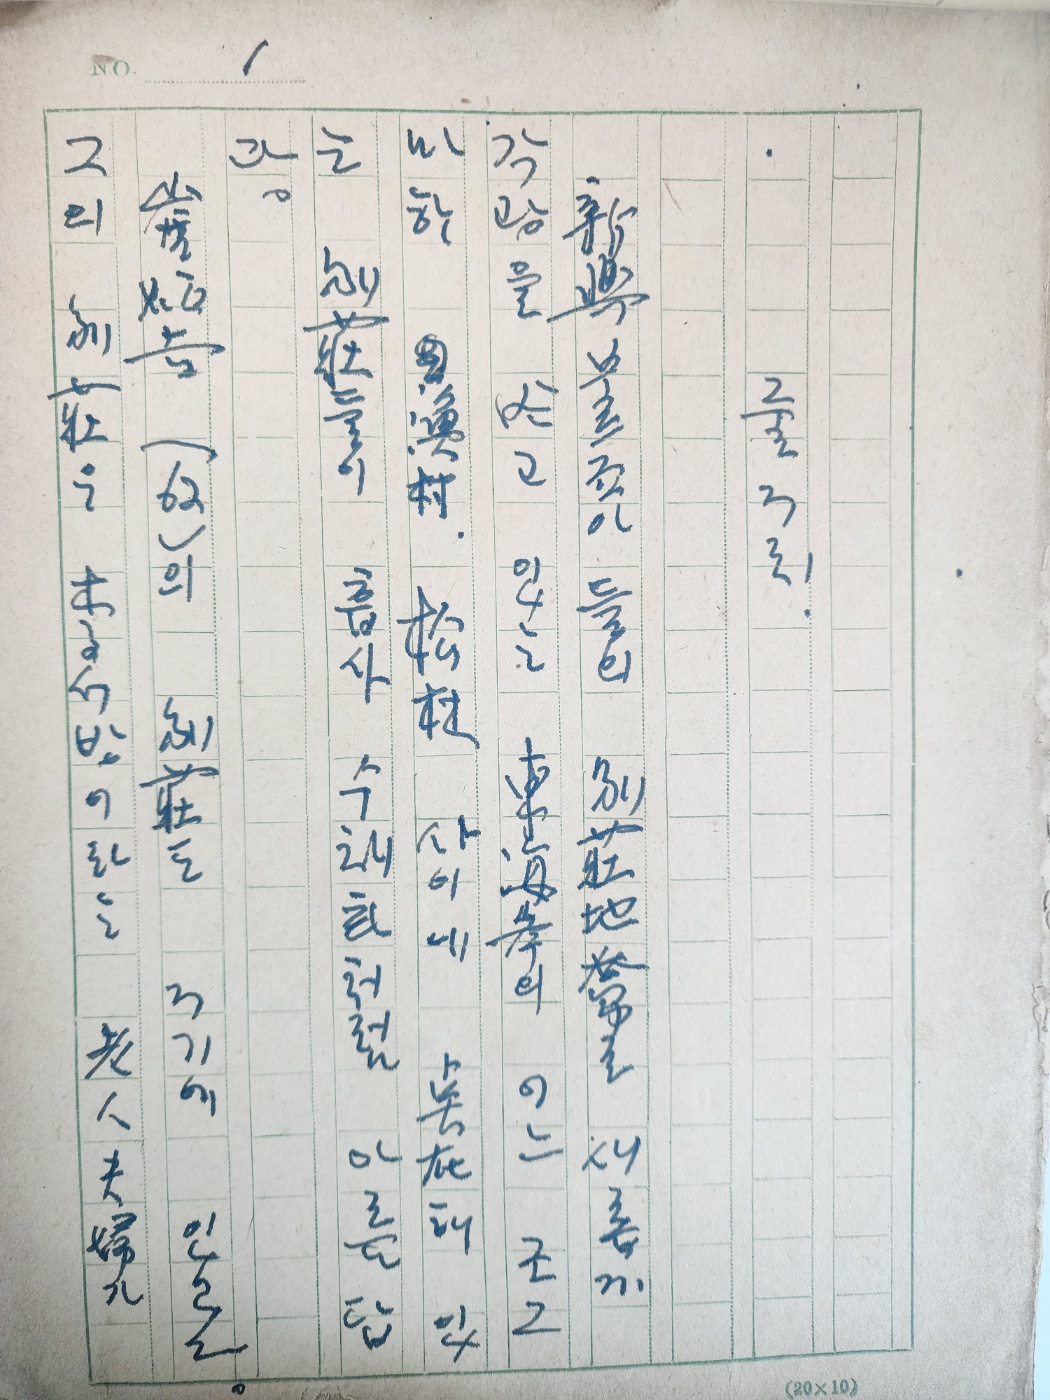 NO. 1
줄거리.
新興 부르조아들의 別莊地帶로 새롭게
각광을 받고 있는 東海岸의 어느 조그
마한 漁村. 松林 사이에 点在해 있
는 別莊들이 흡사 수채화처럼 아름답
다。
崔 (62)의 別莊도 거기에
그의 別莊은 李서방이라는 老人夫婦가
(20×10)